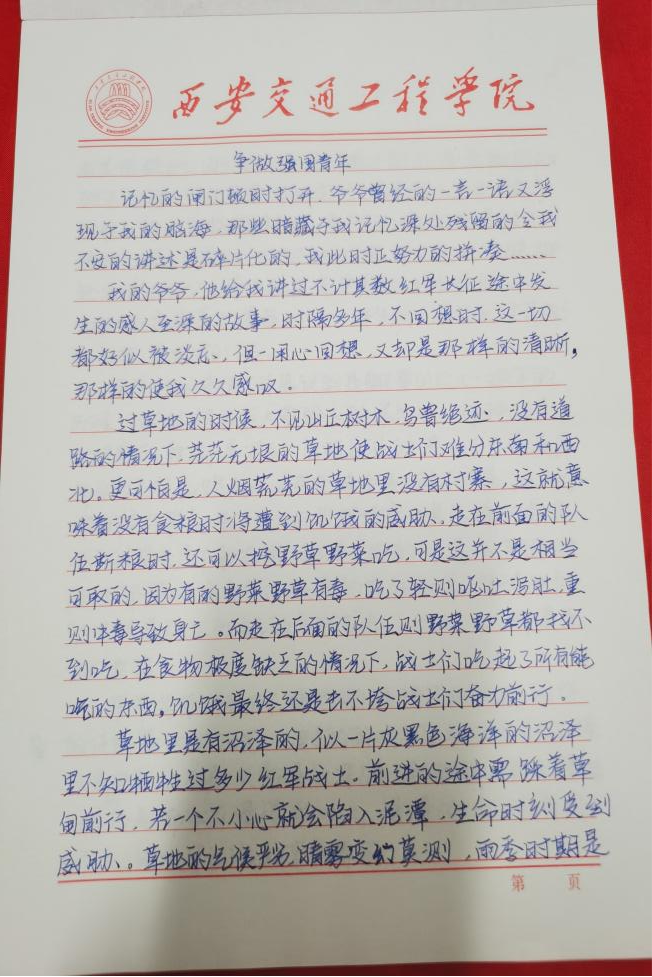 西安交通工程学院
争做强国青年
记忆的闸门顿时打开，爷爷曾经的一言一语又浮
现于我的脑海，那些暗藏于我记忆深处残留的令我
不安的讲述是碎片化的，我此时正努力的拼凑……
我的爷爷，他给我讲过不计其数红军长征途中发
生的感人至深的故事，时隔多年，不回想时，这一切
都好似被淡忘，但一用心回想，又却是那样的清晰，
那样的使我久久感叹。
过草地的时候，不见山丘树木，鸟兽绝迹，没有道
路的情况下，茫茫无垠的草地使战士们难分东南和西
北。更可怕是，人烟荒芜的草地里没有村寨，这就意
味着没有食粮时将遭到饥饿的威胁，走在前面的队
伍断粮时，还可以挖野草野菜吃，可是这并不是相当
可取的，因为有的野菜野草有毒，吃了轻则呕吐泻肚，重
则中毒导致身亡。而走在后面的队伍则野菜野草都找不
到吃，在食物极度缺乏的情况下，战士们吃起了所有能
吃的东西。饥饿最终还是击不垮战士们奋力前行。
草地里是有沼泽的，似一片灰黑色海洋的沼泽
里不知牺牲过多少红军战士。前进的途中需踩着草
甸前行，若一个不小心就会陷入泥潭，生命时刻受到
威胁。草地的气候恶劣晴雾变幻莫测，雨季时期是
第 页